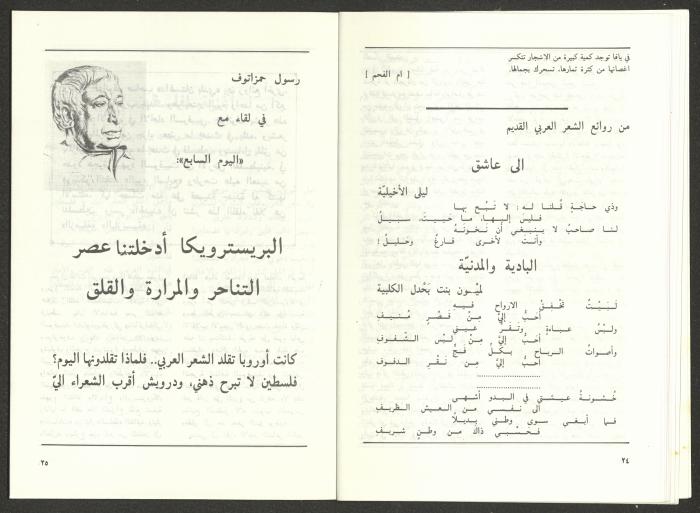 في يافا توجد كمية كبيرة من الاشجار تتكسر
اغصانها من كثرة ثمارها. تسحرك بجمالها.
[ ام الفحم ]
من روائع الشعر العربي القديم
الى عاشق
ليلى الأخيليّة
وذي حاجةٍ قُلنا له: لا تَبُح بها
فليس إليها، ما حَييتَ، سبيلُ
لنا صاحبٌ لا ينبغي أن نخونَهُ
وأنت لأخرى فارغٌ وخليلُ!
البادية والمدنيّة
لميْسون بنت بَحْدل الكلبية
لَبَيْتٌ تخفقُ الارواح فيه
أحبُّ إليَّ مِنْ قصْرٍ مُنيفِ
ولبْسُ عباءةٍ وتقَرَّ عيني
أحبُّ إليَّ مِنْ لبْس الشُّفوفِ
وأصواتُ الرياح بكلِّ فجٍّ
أحبُّ إليَّ مِن نقْر الدفوف
........................
........................
خُشونةُ عيشتي في البدو أشهى
الى نفسي من العيش الظريف
فما أبغي سوى وطني بديلاً
فحسْبي ذاك من وطنٍ شريف
٢٤
رسول حمزاتوف
في لقاء مع
«اليوم السابع»:
البريسترويكا أدخلتنا عصر
التناحر والمرارة والقلق
كانت أوروبا تقلد الشعر العربي.. فلماذا تقلدونها اليوم؟
فلسطين لا تبرح ذهني، ودرويش أقرب الشعراء اليّ
٢٥